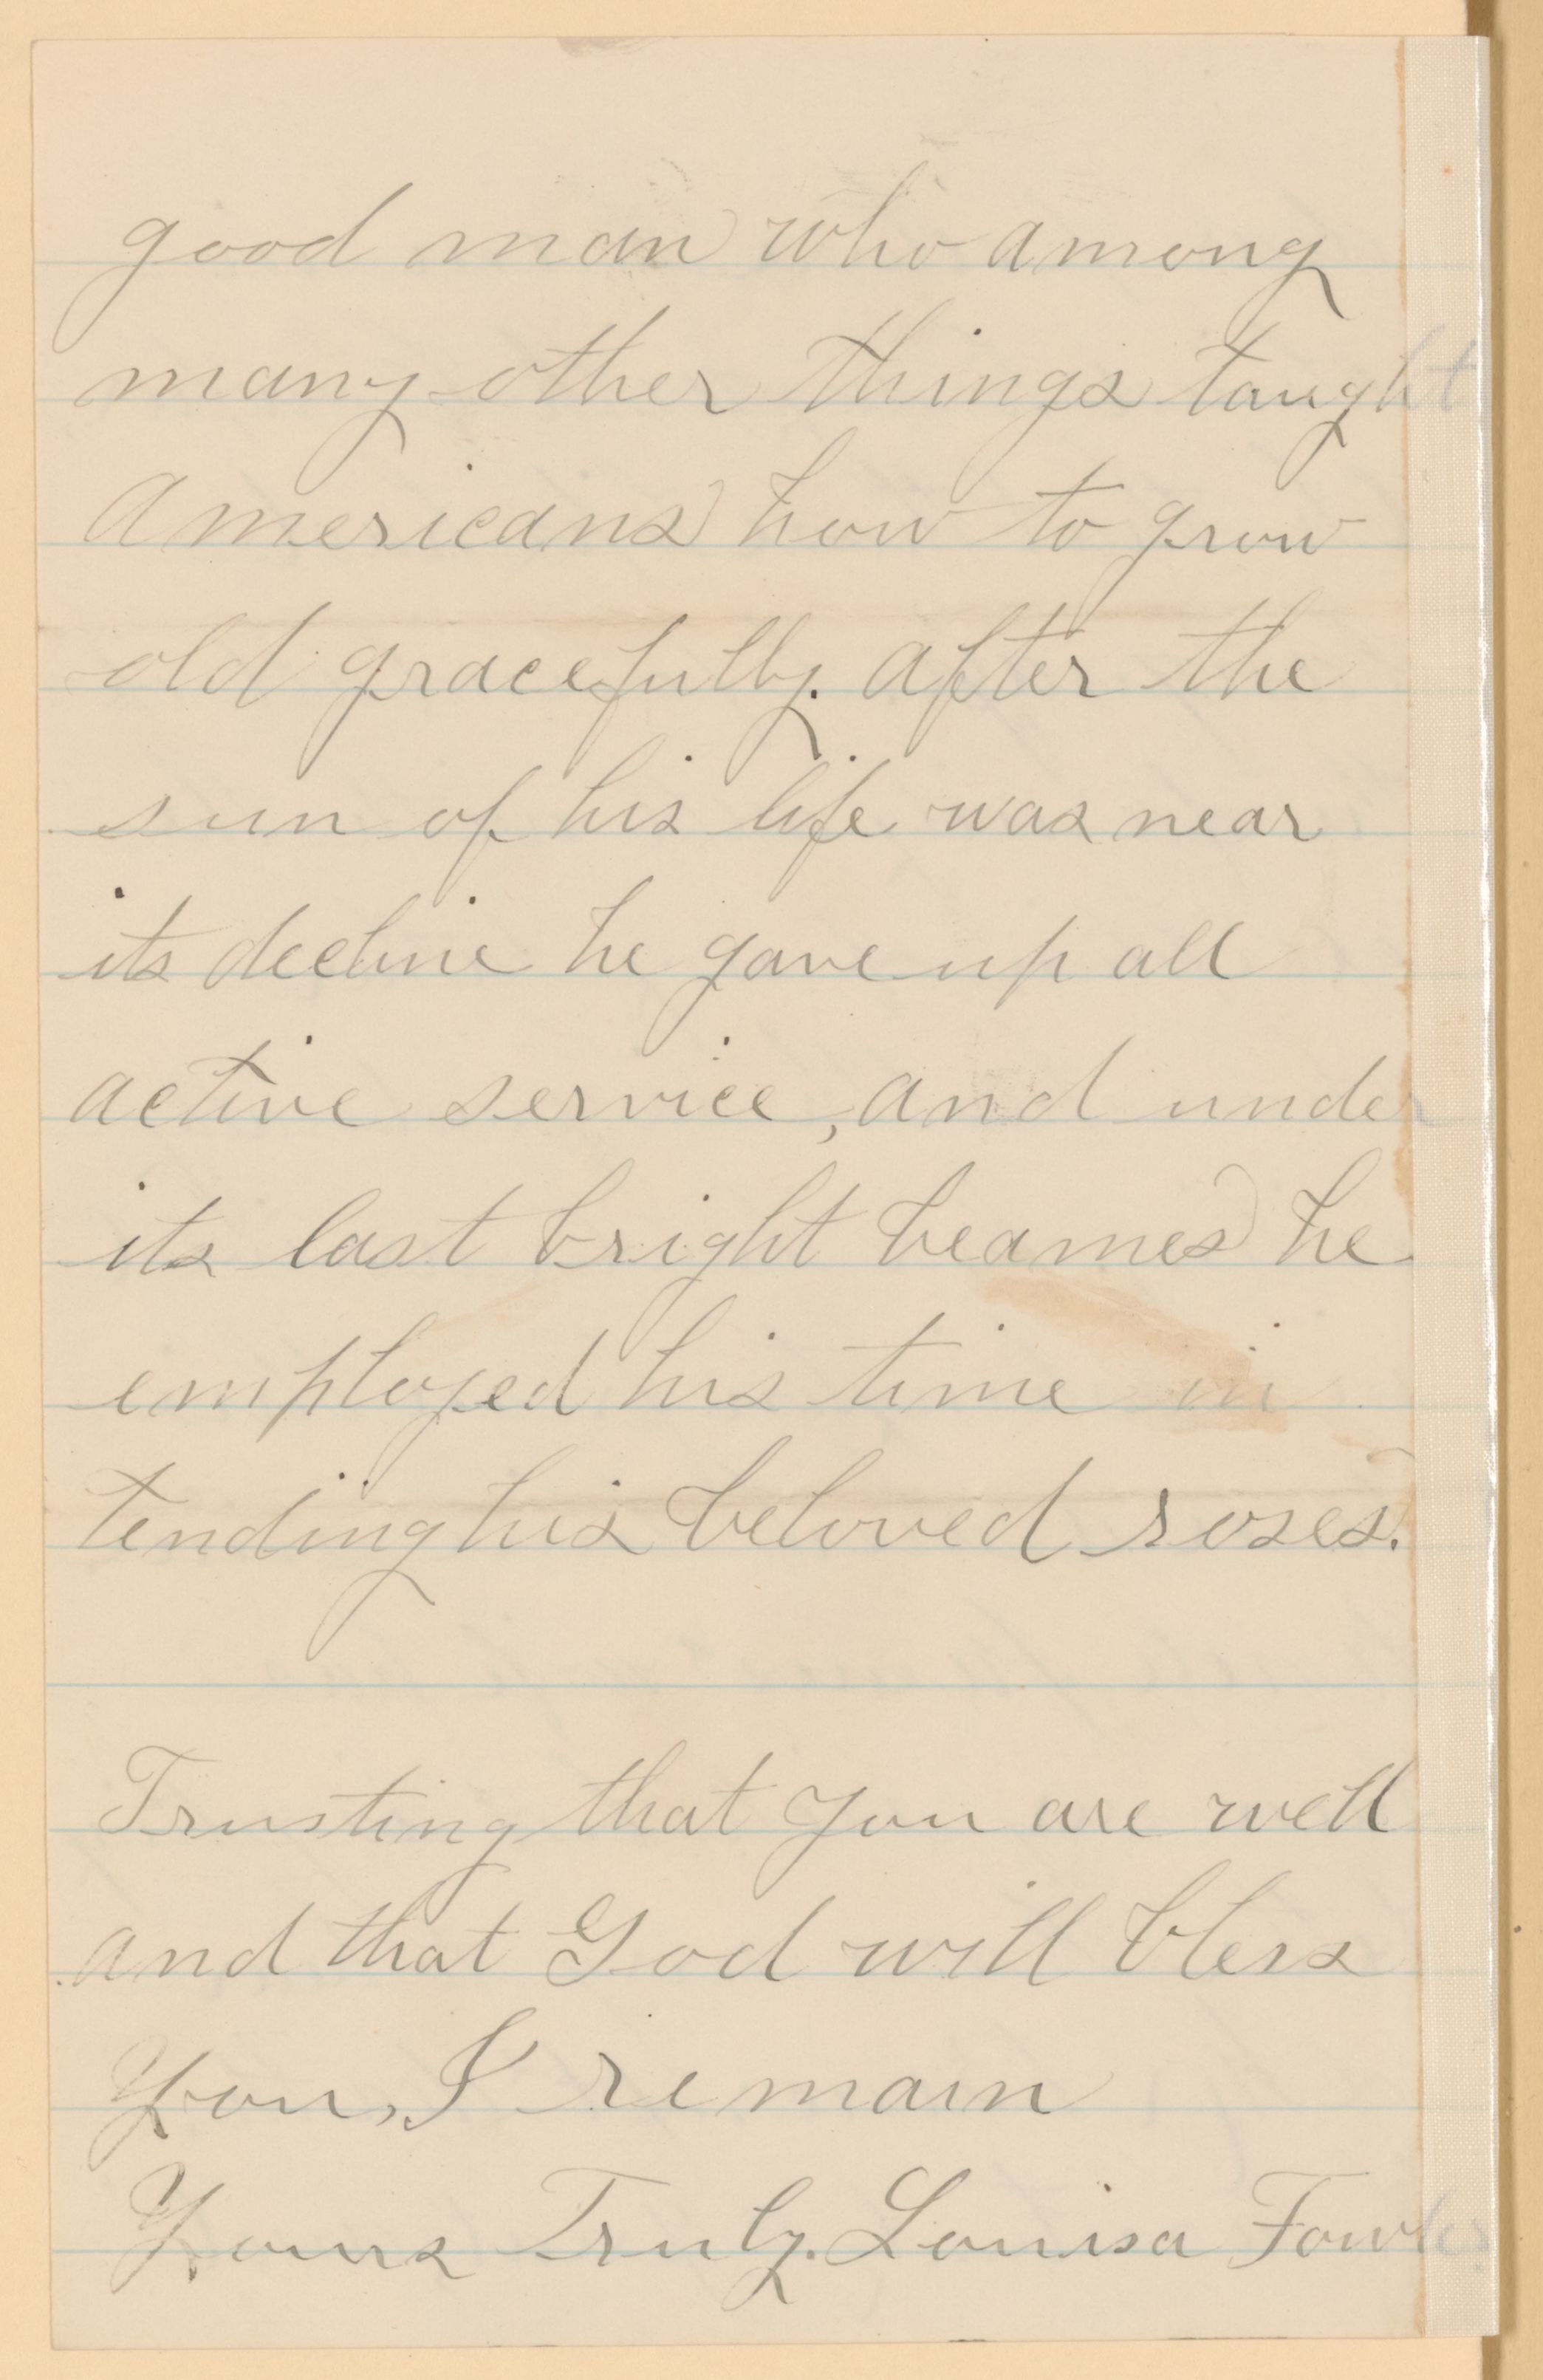 good man who among
many other things taught
Americans how to grow
old gracefully. After the
sun of his life was near
its decline he gave up all
active service, and under
its last bright beames he
employed his time in
tending his beloved roses.
Trusting that you are well
and that God will bless
You, I remain
Yours Truly. Louisa Fowler